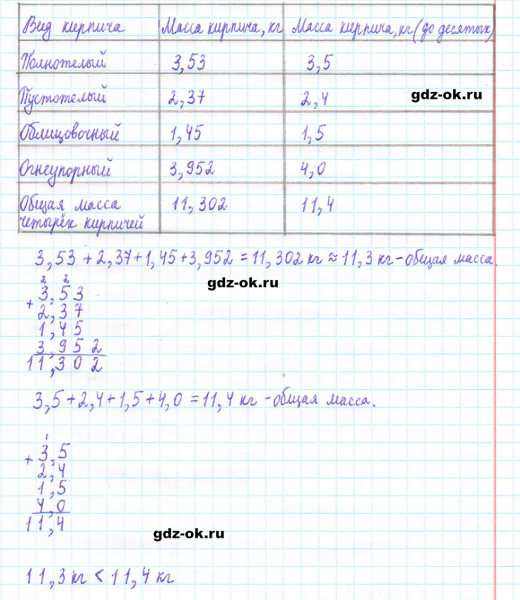 Вид кирпича Масса кирпича, кг Масса кирпича, кг (до десятых)
Полнотелый 3,53 3,5
Пустотелый 2,37 2,4
gdz-ok.ru
Облицовочный 1,45 1,5
Огнеупорный 3,952 4,0
Общая масса 11,302 11,4
четырёх кирпичей
3,53 + 2,37 + 1,45 + 3,952 = 11,302 кг ≈ 11,3 кг - общая масса.
gdz-ok.ru
2 2
3,53
+ 2,37
1,45
3,952
11,302
3,5 + 2,4 + 1,5 + 4,0 = 11,4 кг - общая масса.
1
+ 3,5
2,4
1,5
4,0
11,4
gdz-ok.ru
11,3 кг < 11,4 кг